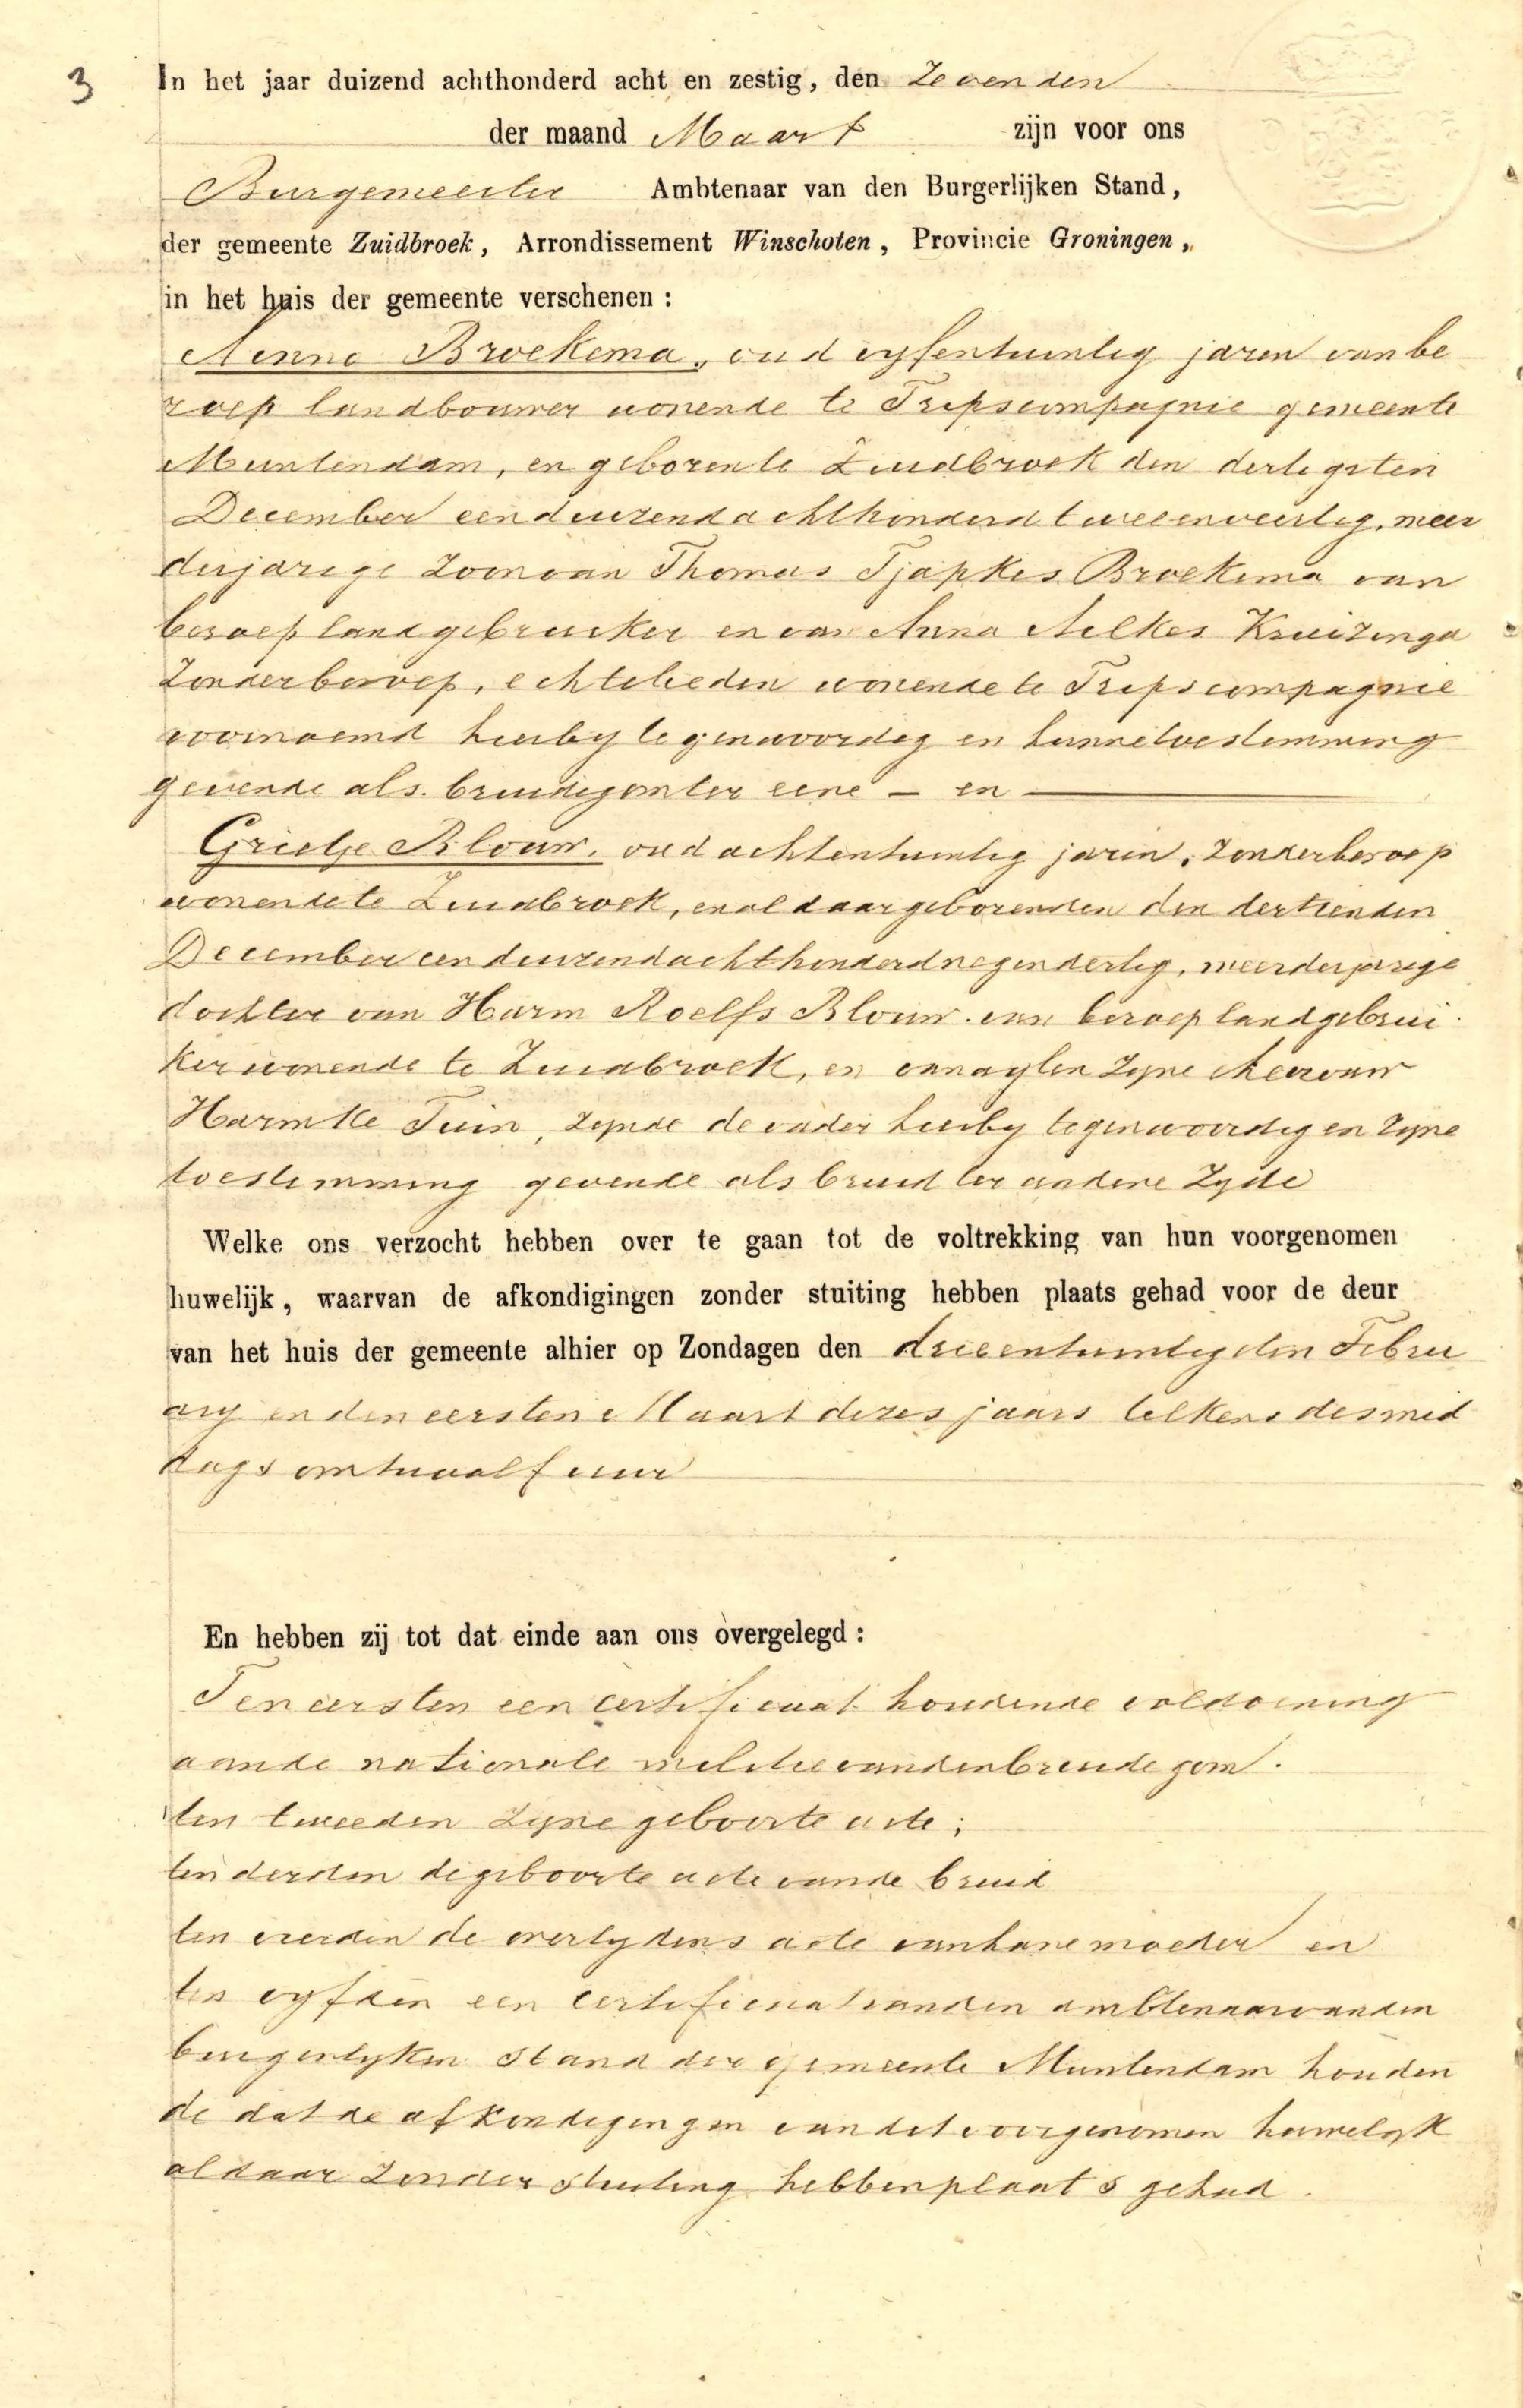 3
In het jaar duizend achthonderd acht en zestig, den zevenden
der maand Maart zijn voor ons
Burgemeester Ambtenaar van den Burgerlijken Stand,
der gemeente Zuidbroek, Arrondissement Winschoten, Provincie Groningen,
in het huis der gemeente verschenen:
Menno Broekema, oud vyfentwintig jaren van be
roep landbouwer wonende te Tripscompagnie gemeente
Muntendam, en geboren te Zuidbroek den dertigsten
December eenduizendachthonderdtweeenveertig, meer
derjarige zoon van Thomas Tjapkes Broekema van
beroep landgebruiker en van Anna Aelkes Kruizenga
zonder beroep, echtelieden wonende te Tripscompagnie
voornoemd hierby tegenwoordig en hunne toestemming
gevende als bruidegom ter eene – en –
Grietje Blouw, oud achtentwintig jaren, zonder beroep
wonende te Zuidbroek, en aldaar geboren den dertienden
December eenduizendachthonderdnegendertig, meerderjarige
dochter van Harm Roelfs Blouw van beroep landgebrui
ker wonende te Zuidbroek, en van wylen zyne huisvrouw
Harmke Tuin, zynde de vader hierby tegenwoordig en zyne
toestemming gevende als bruid ter andere zyde
Welke ons verzocht hebben over te gaan tot de voltrekking van hun voorgenomen
huwelijk, waarvan de afkondigingen zonder stuiting hebben plaats gehad voor de deur
van het huis der gemeente alhier op Zondagen den drieentwintigsten Febru
ary en den eersten Maart dezes jaars telkens des mid
dags om twaalf uur
En hebben zij tot dat einde aan ons overgelegd:
Ten eersten een certificaat houdende voldoening
aan de nationale militie van den bruidegom.
ten tweeden zyne geboorte acte;
ten derden de geboorte acte van de bruid
ten vierden de overlydens acte van hare moeder en
ten vyfden een certificaat van den ambtenaar van den
burgerlyken stand der gemeente Muntendam houden
de dat de afkondigingen van dit voorgenomen huwelyk
aldaar zonder stuiting hebben plaats gehad.